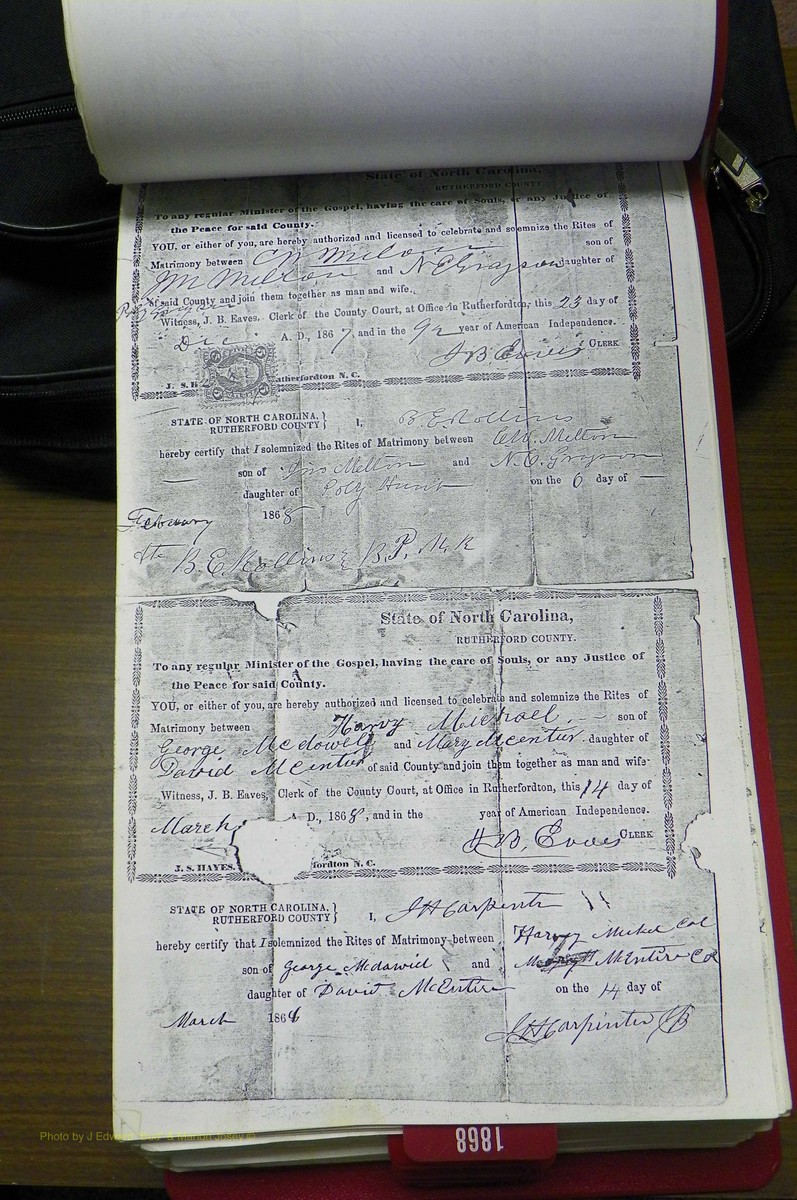 State of North Carolina,
RUTHERFORD COUNTY
To any regular Minister of the Gospel, having the care of Souls, or any Justice of
the Peace for said County.
YOU, or either of you, are hereby authorized and licensed to celebrate and solemnize the Rites of
Matrimony between C M Melton son of
J M Melton and N C Grayson daughter of
of said County and join them together as man and wife.
Witness, J. B. Eaves, Clerk of the County Court, at Office in Rutherfordton, this 23 day of
Dec A. D., 1867, and in the 92 year of American Independence.
J B Eaves CLERK
J. S. H utherfordton N. C.
STATE OF NORTH CAROLINA, }
RUTHERFORD COUNTY } I, B. E. Rollins
hereby certify that I solemnized the Rites of Matrimony between C M. Melton
son of Jno Melton and N. C. Grayson
daughter of Poly Hunt on the 6 day of
February 1868
B. E. Rollins
State of North Carolina,
RUTHERFORD COUNTY.
To any regular Minister of the Gospel, having the care of Souls, or any Justice of
the Peace for said County.
YOU, or either of you, are hereby authorized and licensed to celebrate and solemnize the Rites of
Matrimony between Harvy Michael son of
George Mcdowell and Mary Mcentire daughter of
David McEntire of said County and join them together as man and wife
Witness, J. B. Eaves, Clerk of the County Court, at Office in Rutherfordton, this 14 day of
March A D., 1868, and in the year of American Independence.
J. B. Eaves CLERK
J. S. HAYES. fordton N. C.
STATE OF NORTH CAROLINA, }
RUTHERFORD COUNTY } I, J H Carpenter
hereby certify that I solemnized the Rites of Matrimony between Harvy Michel Col
son of George Mcdawid and McEntire Col
daughter of David McEntire on the 14 day of
March 1868
J H Carpenter
1868
Photo by J Edw